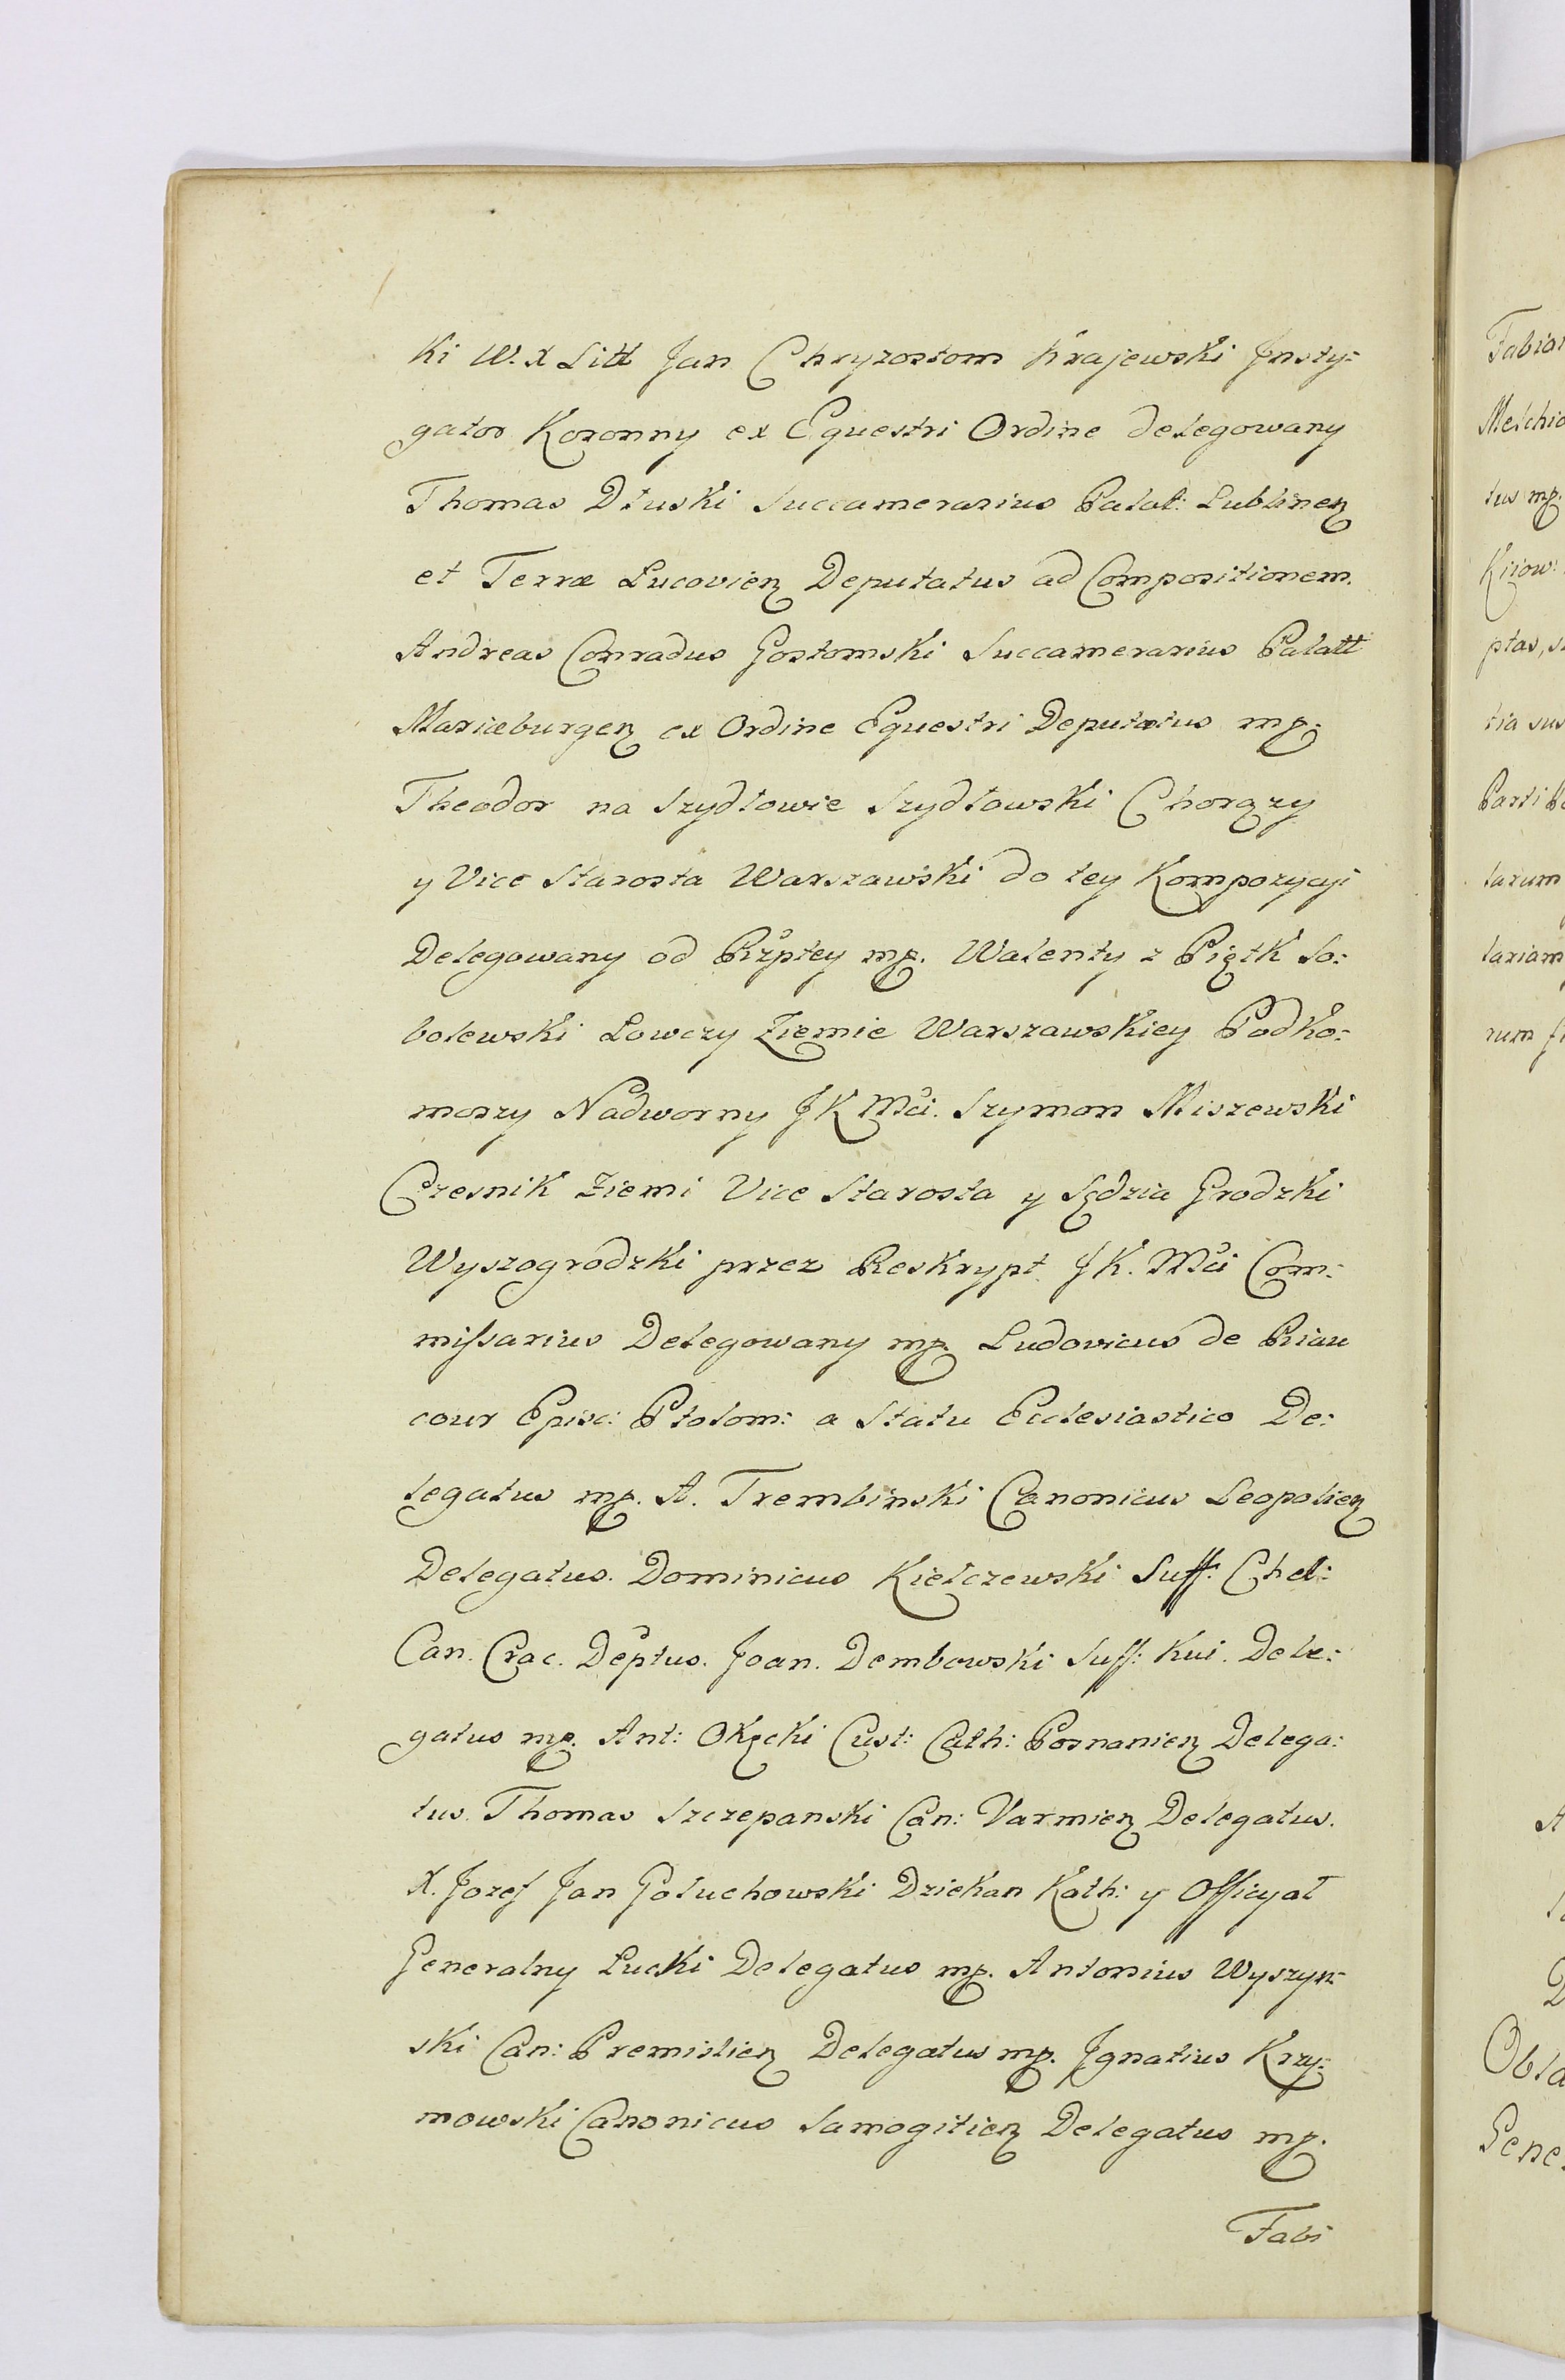 ki W. X Litt Jan Chryzostom Krajewski Jnsty-
gator Koronny ex Equestri Ordine delegowany
Thomas Dłuski Succamerarius Palat: Lublinen
et Terræ Lucovien Deputatus ad Compositionem.
Andreas Conradus Gostomski Succamerarius Palatt
Mariæburgen ex Ordine Equestri Deputatus mp.
Theodor na Szydłowie Szydłowski Chorąży
y Vice Starosta Warszawski do tey Kompozycyi
Delegowany od Rzptey mp. Walenty z Piątk So:
bolewski Łowczy Ziemie Warszawskiey Podko:
morzy Nadworny JK Mci. Szymon Miszewski
Czesnik Ziemi Vice Starosta y Sędzia Grodzki
Wyszogrodzki przez Reskrypt JK. Mci Com:
missarius Delegowany mp. Ludovicus de Riau
cour Episc: Ptolom: a Statu Ecclesiastico De:
legatus mp. A. Trembinski Canonicus Leopolien
Delegatus. Dominicus Kiełczewski Suff: Chel:
Can. Crac. Deptus. Joan. Dembowski Suff: Kui. Dele:
gatus mp. Ant: Okęcki Cust: Cath: Posnanien Delega:
tus. Thomas Szczepanski Can: Varmien Delegatus.
X. Jozef Jan Gołuchowski Dziekan Kath: y Officyał
Generalny Łucki Delegatus mp. Antonius Wyszyn-
ski Can: Premislien Delegatus mp. Jgnatius Krzy:
mowski Canonicus Samogitien Delegatus mp.
Fabi
Melchio
tus mp.
Kijow:
ptas, s
tia sus
Parti
tarum
tariam
rum
Obla
Gene